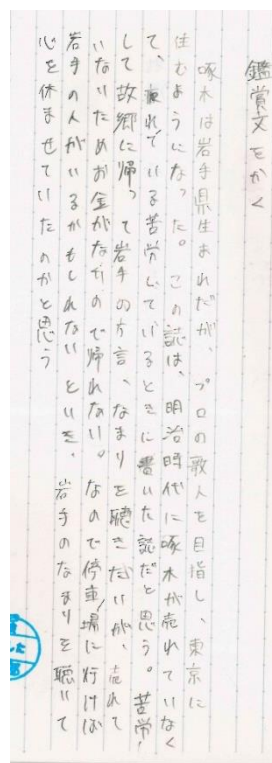 鑑賞文をかく
啄木は岩手県生まれだが、プロの歌人を目指し、東京に
住むようになった。この詩は、明治時代に啄木が売れていなく
て、売れている苦労しているときに書いた詩だと思う。苦労
して故郷に帰って岩手の方言、なまりを聴きたいが、売れて
いないためお金がないので帰れない。なので停車場に行けば
岩手の人がいるかもしれないといき、岩手のなまりを聴いて
心を休ませていたのかと思う